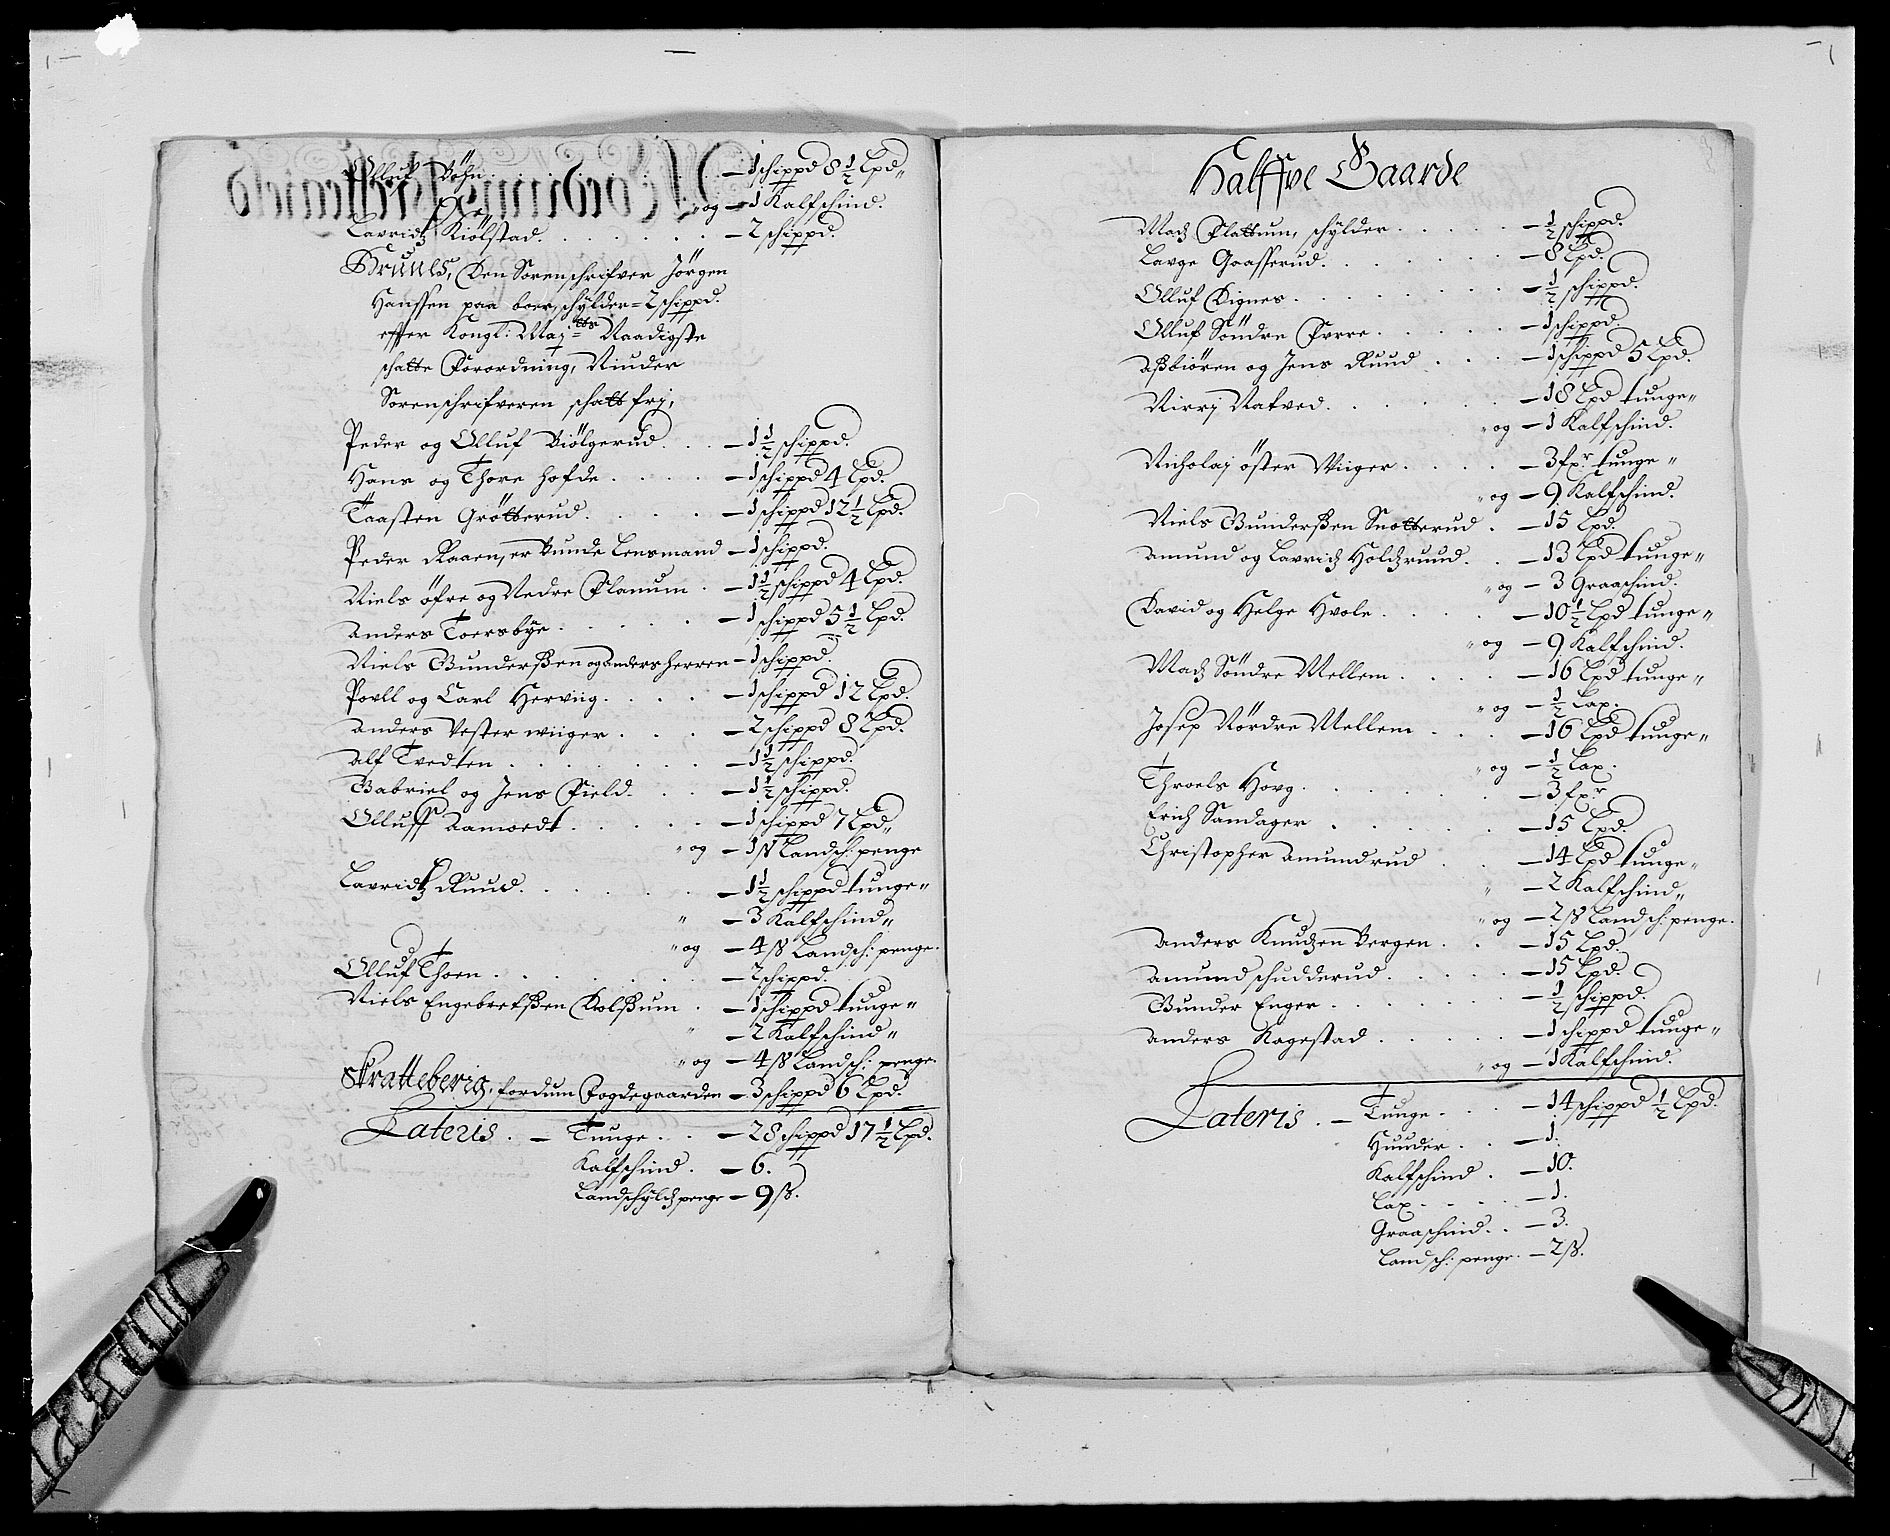 Olluf Böhn . . . . . . . . . — 1 schippd 8 1/2 Lpd„
„ og — 1 Kalfschind.
Lavridtz Kiölstad. . . . . . . — 2 schippd.
Bruunes, Den Sorenschrifver Jörgen
Hanssen paa boer, schÿlder = 2 schippd.
effter Kongl: Maj:tts Naadigste
schatte Forordning, Niuder
Sorenschrifveren schatt frj,
Peder og Olluf Biölgerud . . . — 1 1/2 schippd.
Hans og Thore Hofde . . . . . — 1 schippd 4 Lpd.
Taasten Grötterud . . . . . — 1 schippd 12 1/2 Lpd.
Peder Raaen, er bunde Lensmand — 1 schippd.
Niels öfre og Nedre Planum . — 1 1/2 schippd 4 Lpd.
Anders Toersbÿe . . . . . . — 1 schippd 5 1/2 Lpd.
Niels Gunderßen og Anders Herren — 1 schippd.
Povll og Carl Herviig . . . . — 1 schippd 12 Lpd.
Anders Vester wiiger . . . . — 2 schippd 8 Lpd.
Alf Tvedten . . . . . . . — 1 1/2 schippd.
Gabriel og Jens Field . . . — 1 1/2 schippd.
Olluff Aamoedt . . . . . . — 1 schippd 7 Lpd„
„ og — 1 ß Landsch: penge
Lavridtz Ruud . . . . . . — 1 1/2 schippd tunge„
„ — 3 Kalfschind„
„ og — 4 ß Landsch: penge.
Olluf Thoen . . . . . . . — 2 schippd.
Niels Engebretßen Kolßum . — 1 schippd tunge„
„ — 2 Kalfschind„
„ og — 4 ß Landsch: penge.
Skratteberig, fordum Fogdegaarden — 3 schippd 6 Lpd.
Lateris . — Tunge . . — 28 schippd 17 1/2 Lpd.
Kalfschind . — 6.
Landschÿldz penge — 9 ß.
Halffve Gaarde
Madz Plattum, schÿlder . . . . . — 1/2 schippd.
Lavge Goasserud . . . . . . . — 8 Lpd.
Olluf Dignes . . . . . . . — 1/2 schippd.
Olluf Söndre Færre . . . . . — 1 schippd
Aßbiören og Jens Ruud . . . — 1 schippd 5 Lpd.
Nirrj Natved . . . . . . — 18 Lpd tunge„
„ og — 1 Kalfschind.
Nicholaj öster Wiiger . . . . — 3 fxr tunge„
„ og — 9 Kalfschind.
Niels Gunderßen Snotterud . — 15 Lpd.
Amund og Lavridz Holdzruud . . — 13 Lpd tunge„
„ og — 3 Graaschind.
David og Helge Hvole . . . . — 10 1/2 Lpd tunge„
„ og — 9 Kalfschind.
Madz Söndre Mellem . . . . — 16 Lpd tunge„
„ og — 1/2 Lax.
Josep Nördre Mellem . . . — 16 Lpd tunge„
„ og — 1/2 Lax.
Throels Hovg . . . . . . — 3 fxr
Erich Sandager . . . . . . — 15 Lpd.
Christopher Amundrud . . . — 14 Lpd tunge„
„ — 2 Kalfschind„
„ og — 2 ß Landsch: penge.
Anders Knudzen Bergen . . — 15 Lpd.
Amund schudderud . . . . . — 15 Lpd.
Gunder Enger . . . . . . . — 1/2 schippd.
Anders Kagestad . . . . . . — 1 schippd tunge„
„ og — 1 Kalfschind.
Lateris . — Tunge . . . — 14 schippd 1/2 Lpd.
Huuder . . — 1.
Kalfschind . — 10.
Lax . . . . — 1.
Graaschind . . — 3.
Landsch: penge . — 2 ß.